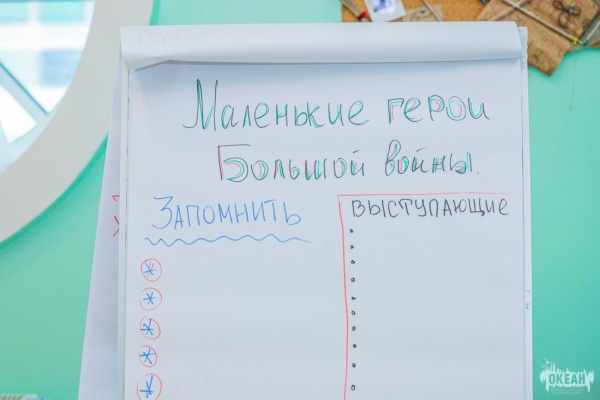 Маленькие герои
Большой войны.
Запомнить
выступающие
ОКЕАН